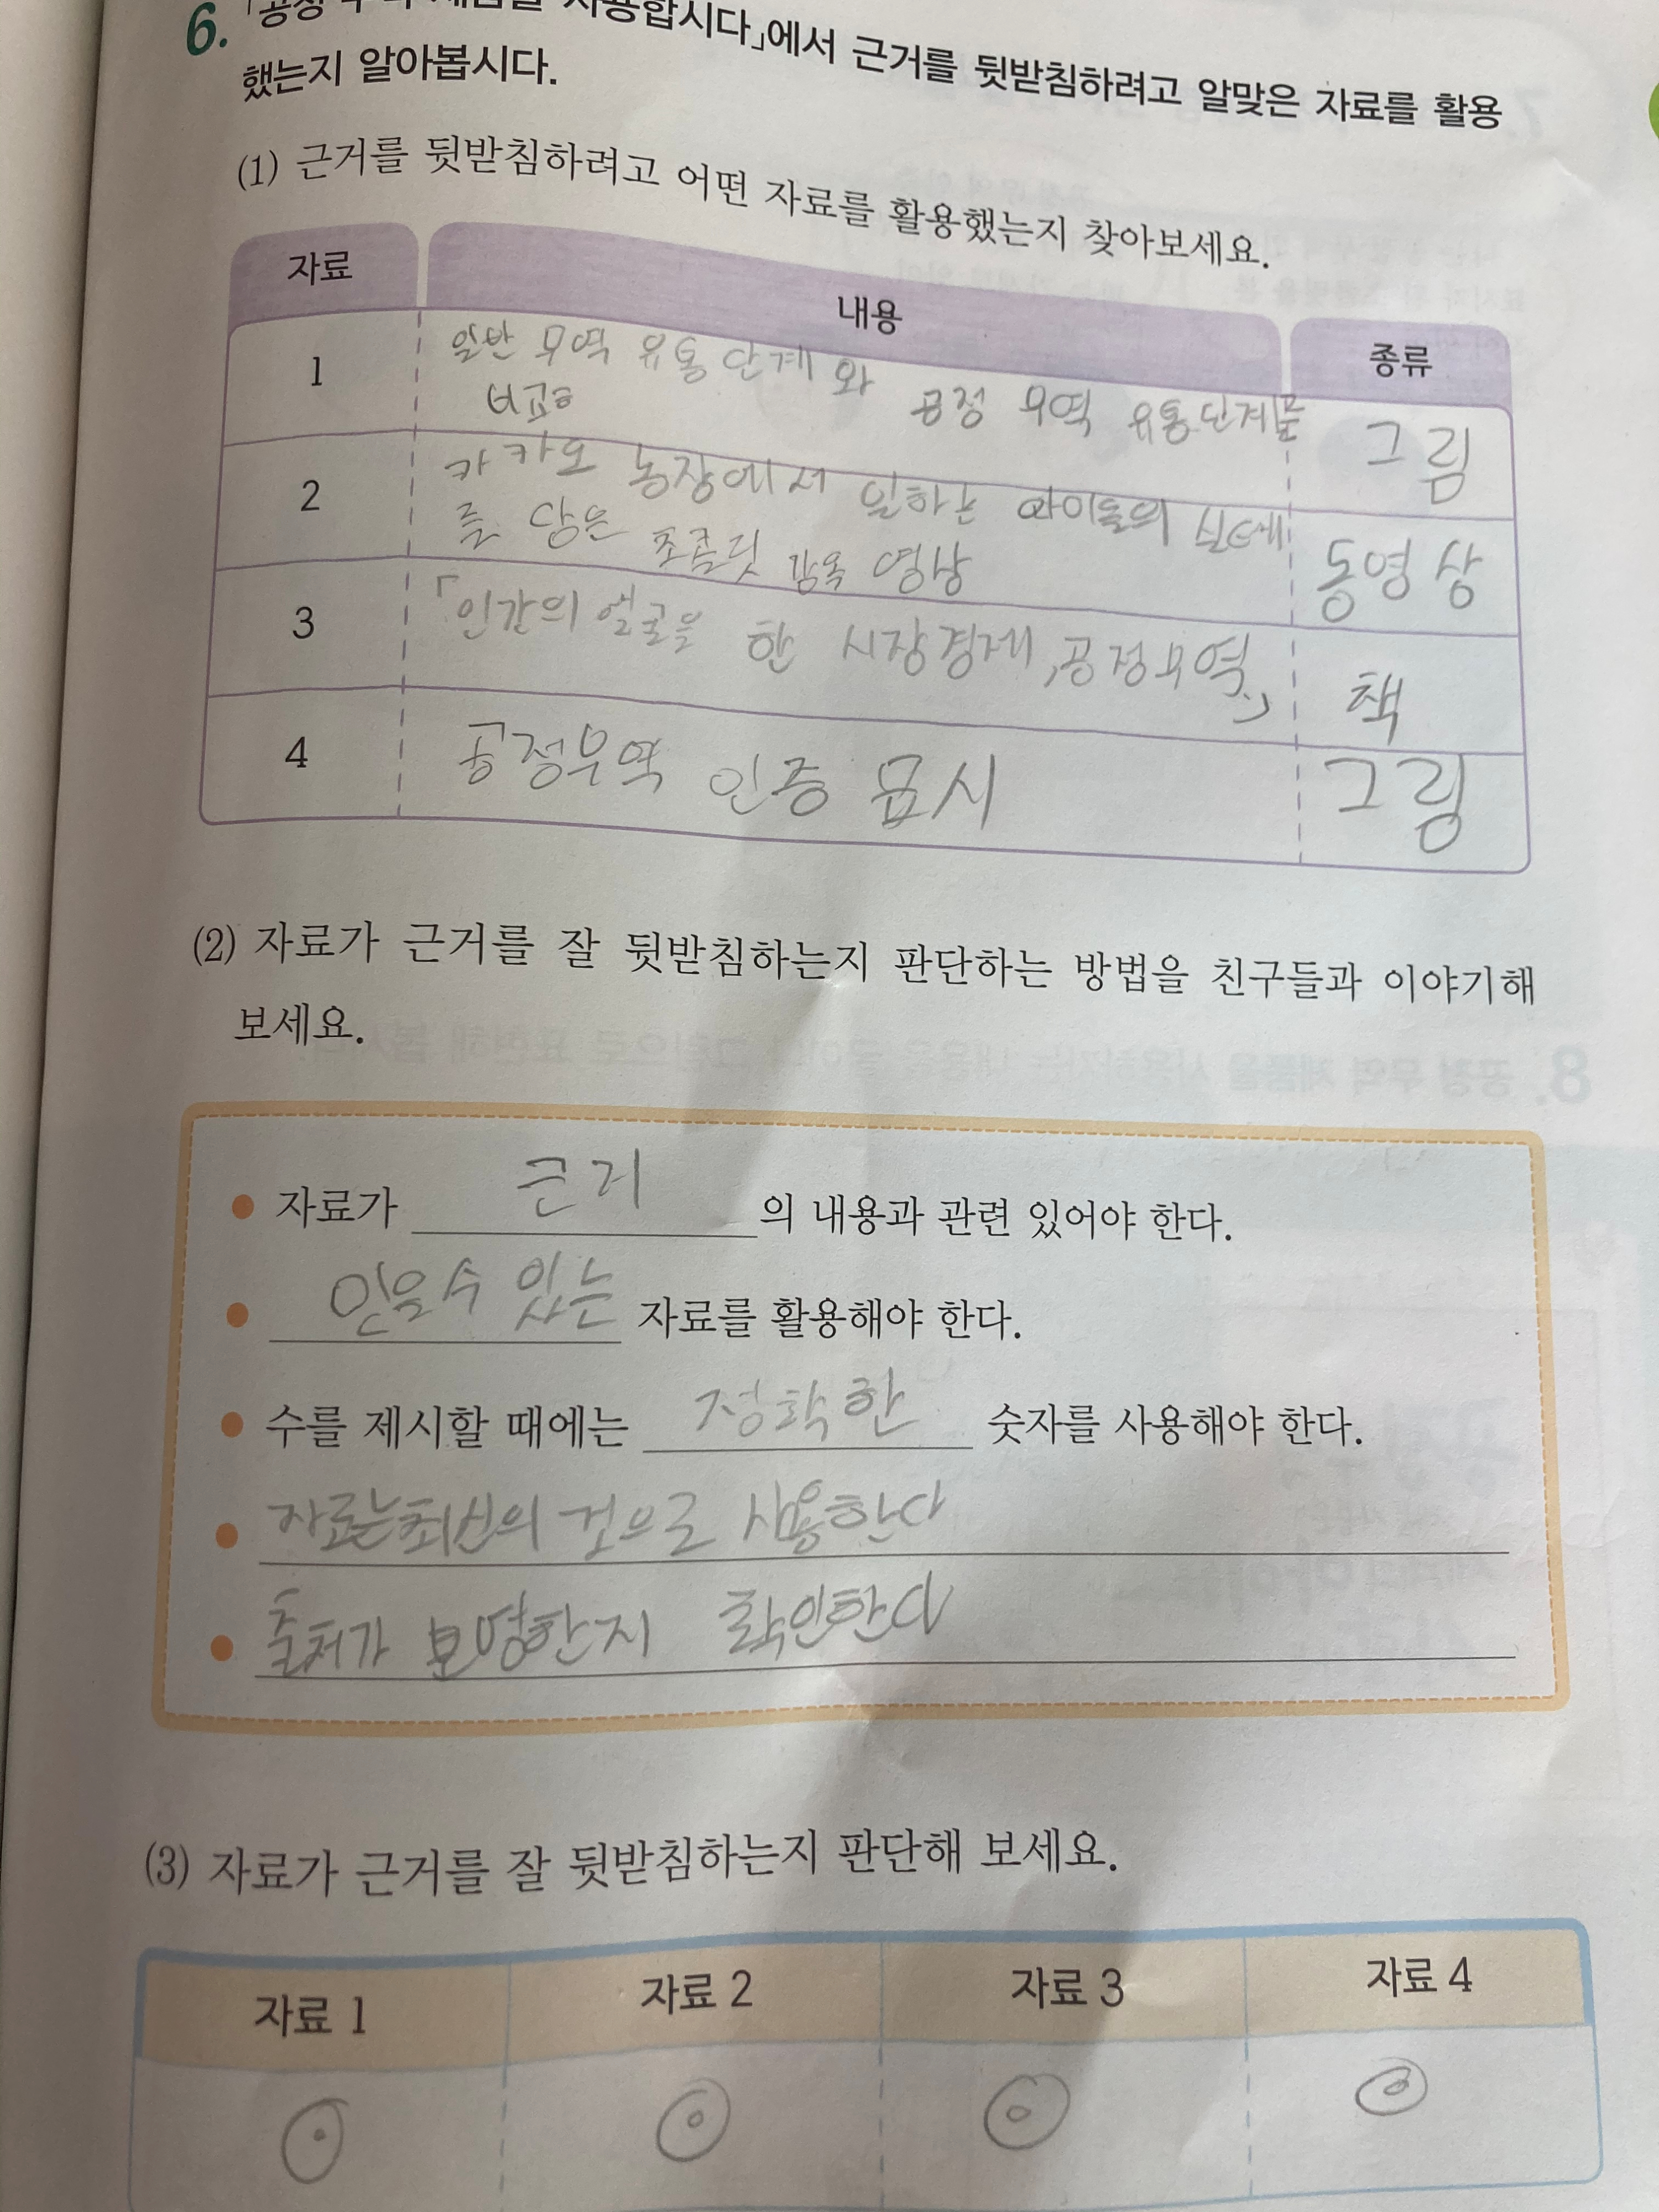 6. 「공정 무역 제품을 사용합시다」에서 근거를 뒷받침하려고 알맞은 자료를 활용
했는지 알아봅시다.
(1) 근거를 뒷받침하려고 어떤 자료를 활용했는지 찾아보세요.
자료 내용 종류
1 일반 무역 유통단계와 공정 무역 유통단계를
비교 그림
2 카카오 농장에서 일하는 아이들의 실태
를 담은 초콜릿 감옥 영상 동영상
3 「인간의 얼굴을 한 시장경제, 공정무역」 책
4 공정무역 인증 표시 그림
(2) 자료가 근거를 잘 뒷받침하는지 판단하는 방법을 친구들과 이야기해
보세요.
• 자료가 근거의 내용과 관련 있어야 한다.
• 믿을 수 있는 자료를 활용해야 한다.
• 수를 제시할 때에는 정확한 숫자를 사용해야 한다.
• 자료는 최신의 것으로 사용한다
• 출처가 분명한지 확인한다
(3) 자료가 근거를 잘 뒷받침하는지 판단해 보세요.
자료 1 자료 2 자료 3 자료 4